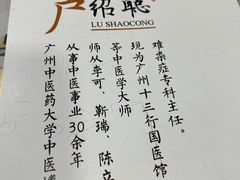 卢绍聪
LU SHAOCONG
广州中医药大学中医
从事中医事业30余年
师从李可、靳瑞、陈立
等中医学大师
现为广州十三行国医馆
难杂症专科主任。